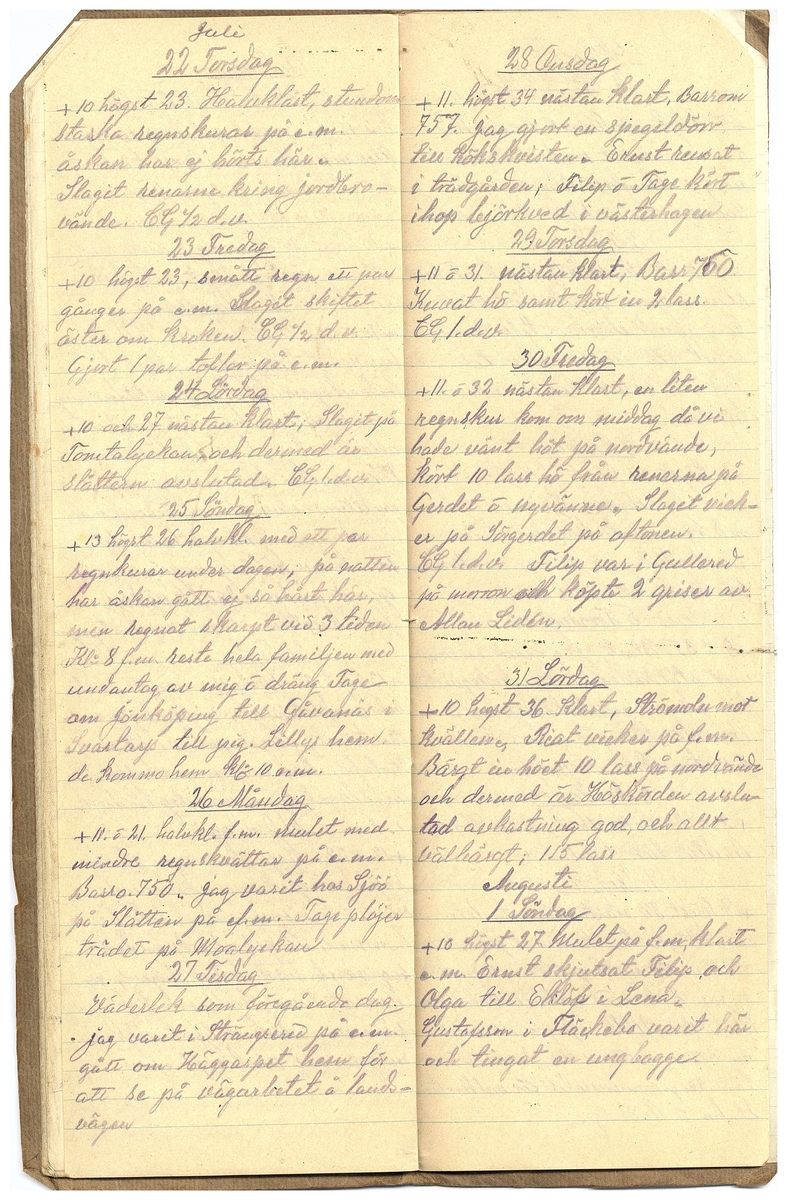 Juli
22 Torsdag
+10 högst 23. Halvklart, stundom
starka regnskurar på e.m.
åskan har ej hörts här.
Slaget renarne kring jordbro-
vände. CG 1/2 d.v.
23 Fredag
+10 högst 23, smått regn ett par
gånger på e.m. Slaget skiftet
öster om kroken. CG 1/2 d.v.
Gjort 1 par toflor på e.m.
24 Lördag
+10 och 27 nästan klart; Slaget på
Tomtalyckan, och dermed är
slåttern avslutad. CG 1.d.v.
25 Söndag
+13 högst 26 halvkl. med ett par
regnkurar under dagen; på natten
har åskan gått ej så hårt här,
men regnat skarpt vid 3 tiden
Kl: 8 f.m. reste hela familjen med
undantag av mig o dräng Tage
om Jönköping till Gåvanäs i
Svartarp till pig. Lillys hem.
de kommo hem Kl: 10 e.m.
26 Måndag
+11. o 21. halvkl. f.m. mulet med
mindre regnskvättar på e.m.
Barro. 750. jag varit hos Sjöö
på Slätten på e.m. Tage plöjer
trädet på Moalyckan
27 Tisdag
Väderlek som föregående dag.
jag varit i Strängsered på e.m.
gått om Häggarpet hem för
att se på vägarbetet å lands-
vägen
28 Onsdag
+11. högst 34 nästan klart, Barrom
757. jag gjort en spegeldörr
till Kökskvisten. Ernst rensat
i trädgården; Filip o Tage kört
ihop björkved i västerhagen
29 Torsdag
+11 o 31. nästan klart, Barr 750
Kuvat hö samt kört in 2 lass.
CG 1.d.v.
30 Fredag
+11. o 32 nästan Klart, en liten
regnskur kom om middag då vi
hade vänt höt på nordvände,
kört 10 lass hö från renerna på
Gerdet o nyvänne. Slaget vick-
er på Sörgerdet på aftonen.
CG 1.d.v. Filip var i Gullered
på morron och köpte 2 griser av
Allan Lidén
31 Lördag
+10 högst 36. klart, Strömoln mot
kvällen, Riat vicker på f.m.
Bärgt in höet 10 lass på nordvände
och dermed är Höskörden avslu-
tad avkastning god, och allt
välbärgt; 115 lass
Augusti
1 Söndag
+10 högst 27. Mulet på f.m. klart
e.m. Ernst skjutsat Filip och
Olga till Eklöfs i Lena.
Gustafsson i Fläckebo varit här
och tingat en ungbagge